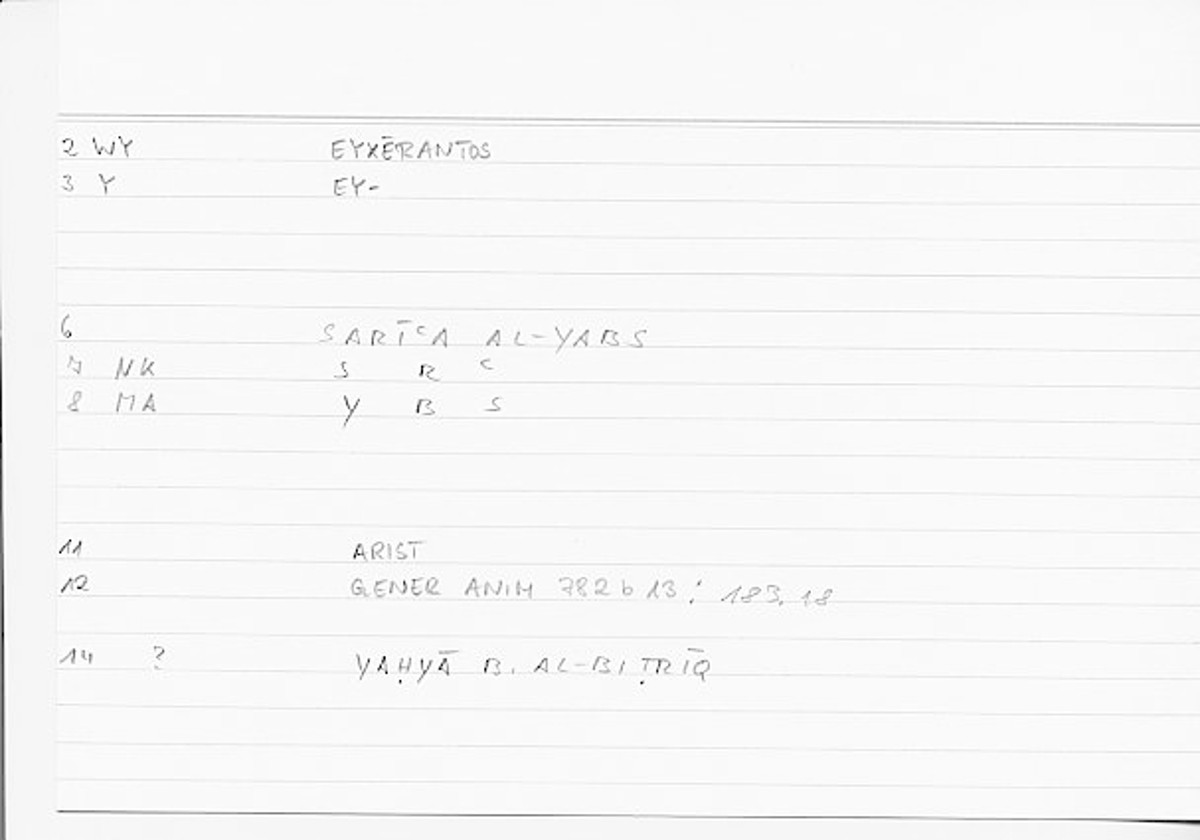 2 WY EYXĒRANTOS
3 Y EY-
6 SARĪʿA AL-YABS
7 NK S R ʿ
8 MA Y B S
11 ARIST
12 GENER ANIM 782 b 13 : 183.18
14 ? YAḤYĀ B. AL-BIṬRĪQ